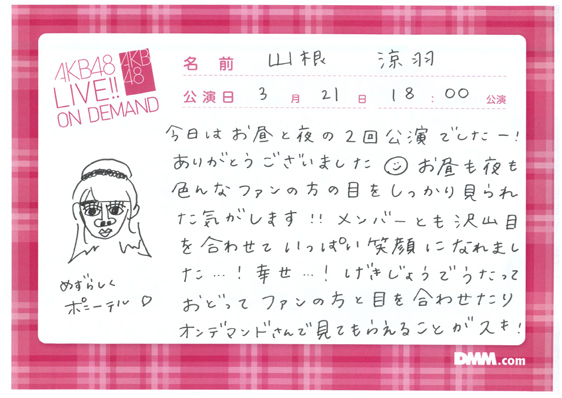 AKB48
LIVE!!
ON DEMAND
AKB
48
名前 山根 涼羽
公演日 3月21日 18:00公演
今日はお昼と夜の2回公演でしたー!
ありがとうございました☺お昼も夜も
色んなファンの方の目をしっかり見られ
た気がします!!メンバーとも沢山目
を合わせていっぱい笑顔になれまし
た…!幸せ…!げきじょうでうたって
おどってファンの方と目を合わせたり
オンデマンドさんで見てもらえることがスキ!
めずらしく
ポニーテル♡
DMM.com